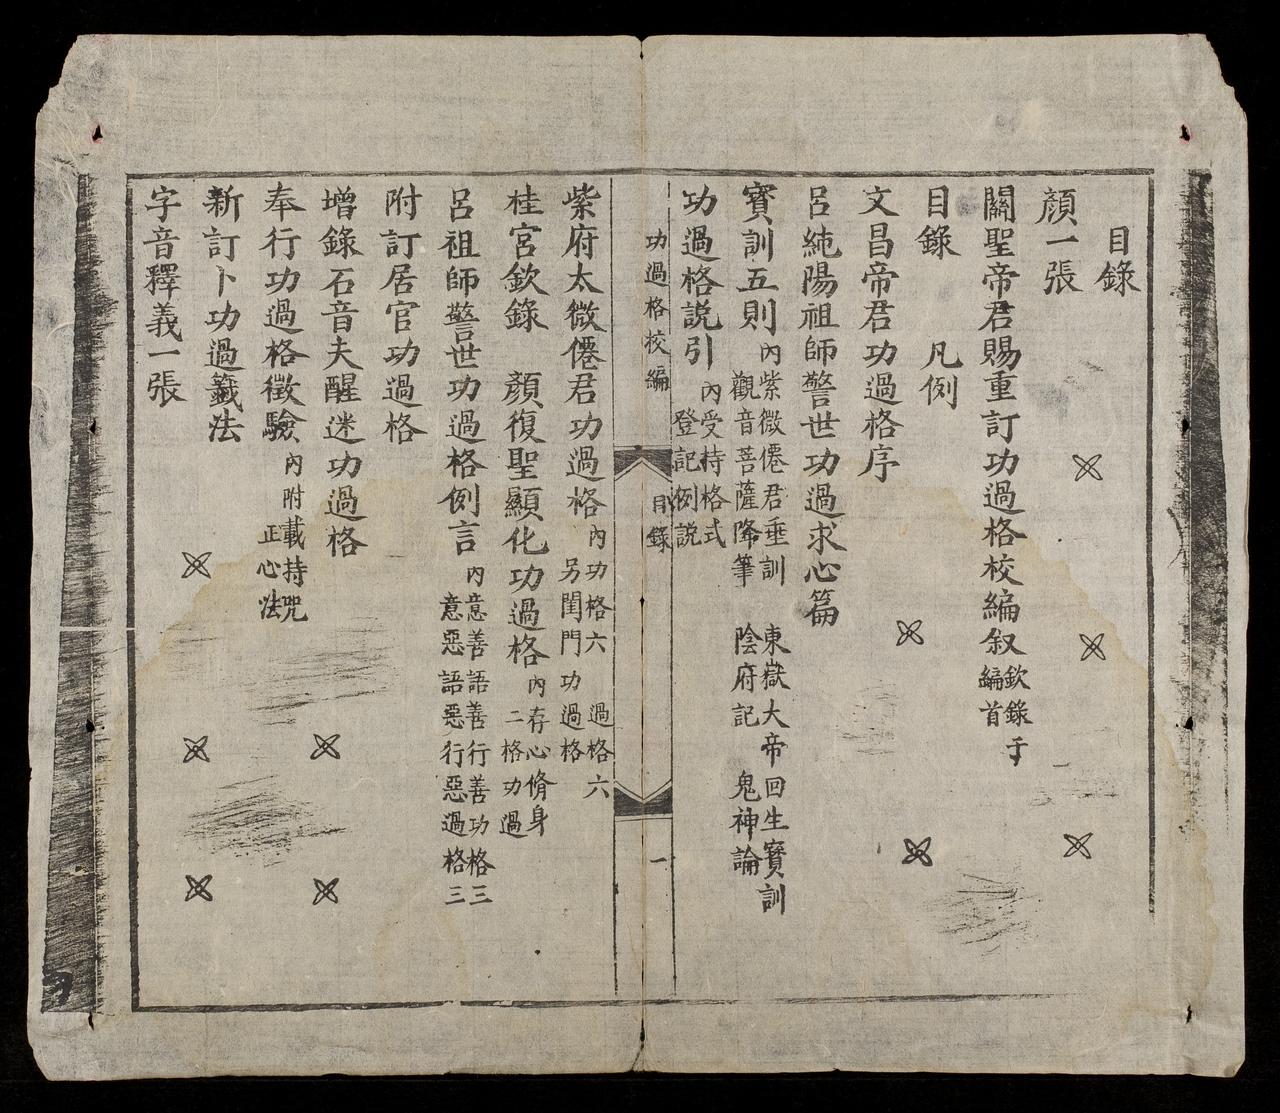 目錄
顏一張
關聖帝君賜重訂功過格校編叙 欽錄于編首
目錄 凡例
文昌帝君功過格序
呂純陽祖師警世功過求心篇
寶訓五則 內紫微僊君垂訓 東嶽大帝回生寶訓 觀音菩薩降筆 陰府記 鬼神論
功過格說引 內受持格式 登記例說
功過格校編 目錄 一
紫府太微僊君功過格 內功格六 過格六 另閨門功過格
桂宮欽錄 顏復聖顯化功過格 內存心脩身二格功過
呂祖師警世功過格例言 內意善語善行善功格三 意惡語惡行惡過格三
附訂居官功過格
增錄石音夫醒迷功過格
奉行功過格徵驗 內附載持正心法咒
新訂卜功過籤法
字音釋義一張